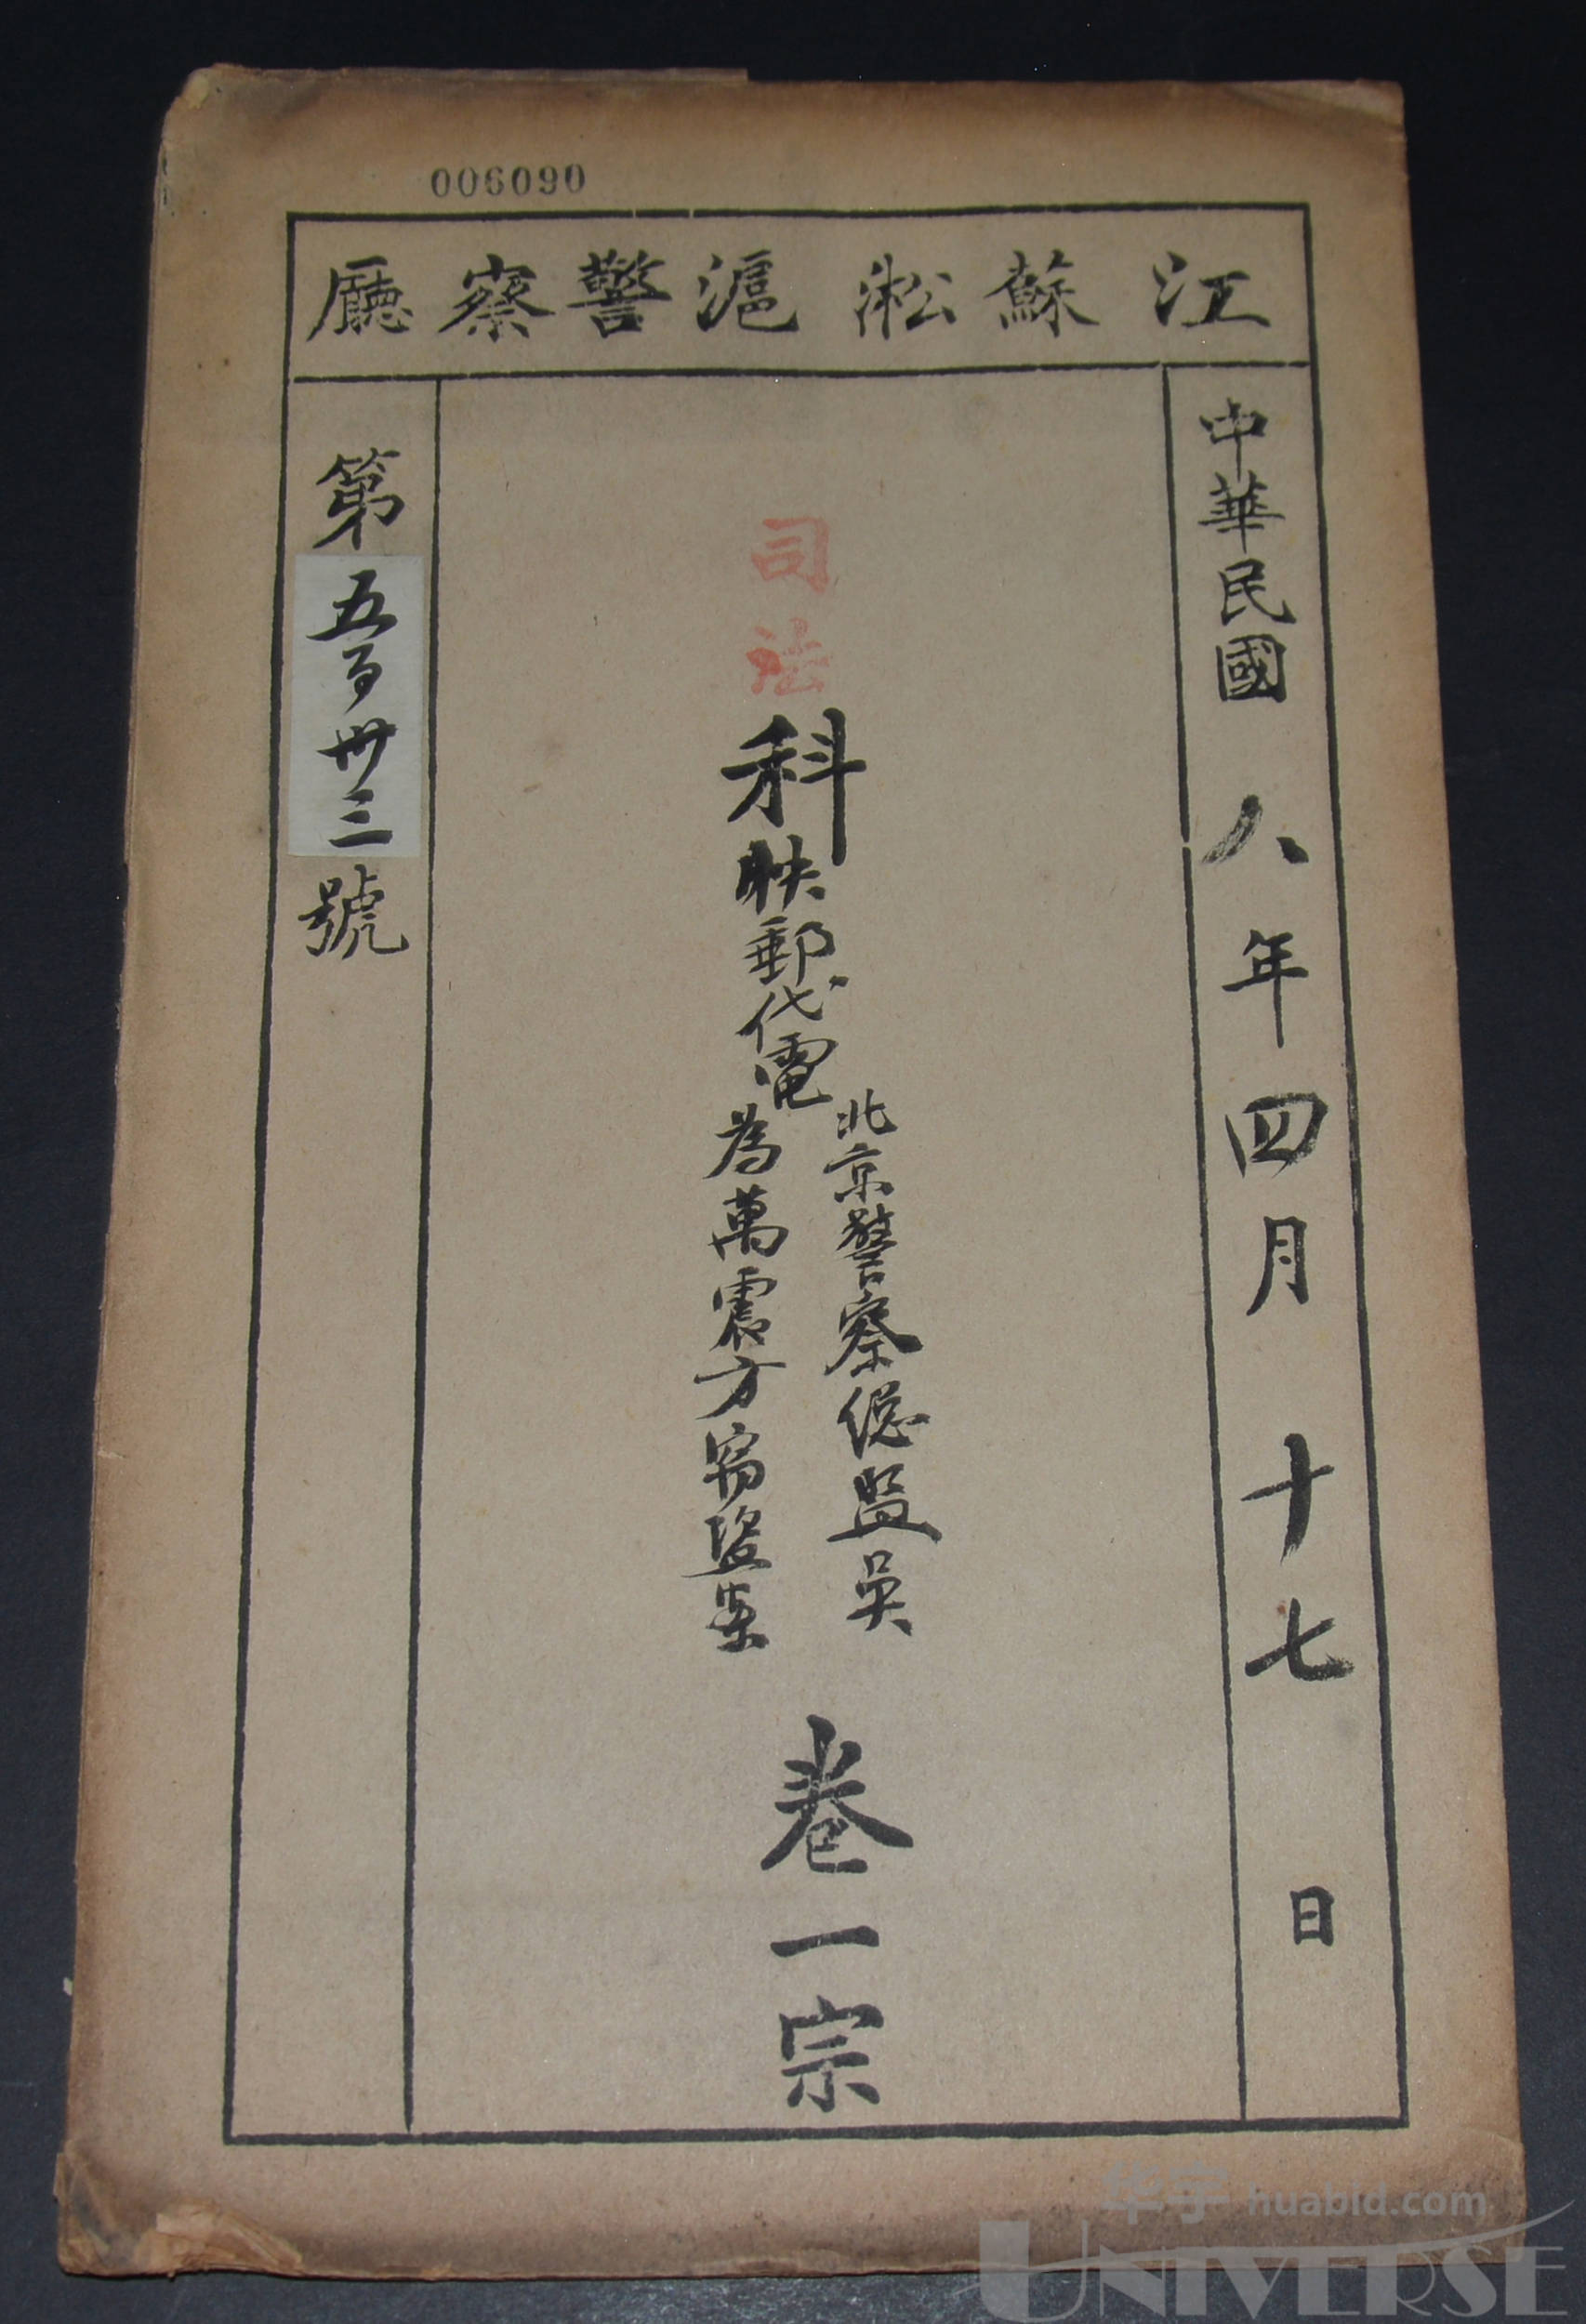 006090
江蘇淞滬警察廳
中華民國八年四月十七日
司法科
郵代電
北京警察總監吳
為萬震方竊盜案
卷一宗
第五百卅三號
华宇 huabid.com
UNIVERSE